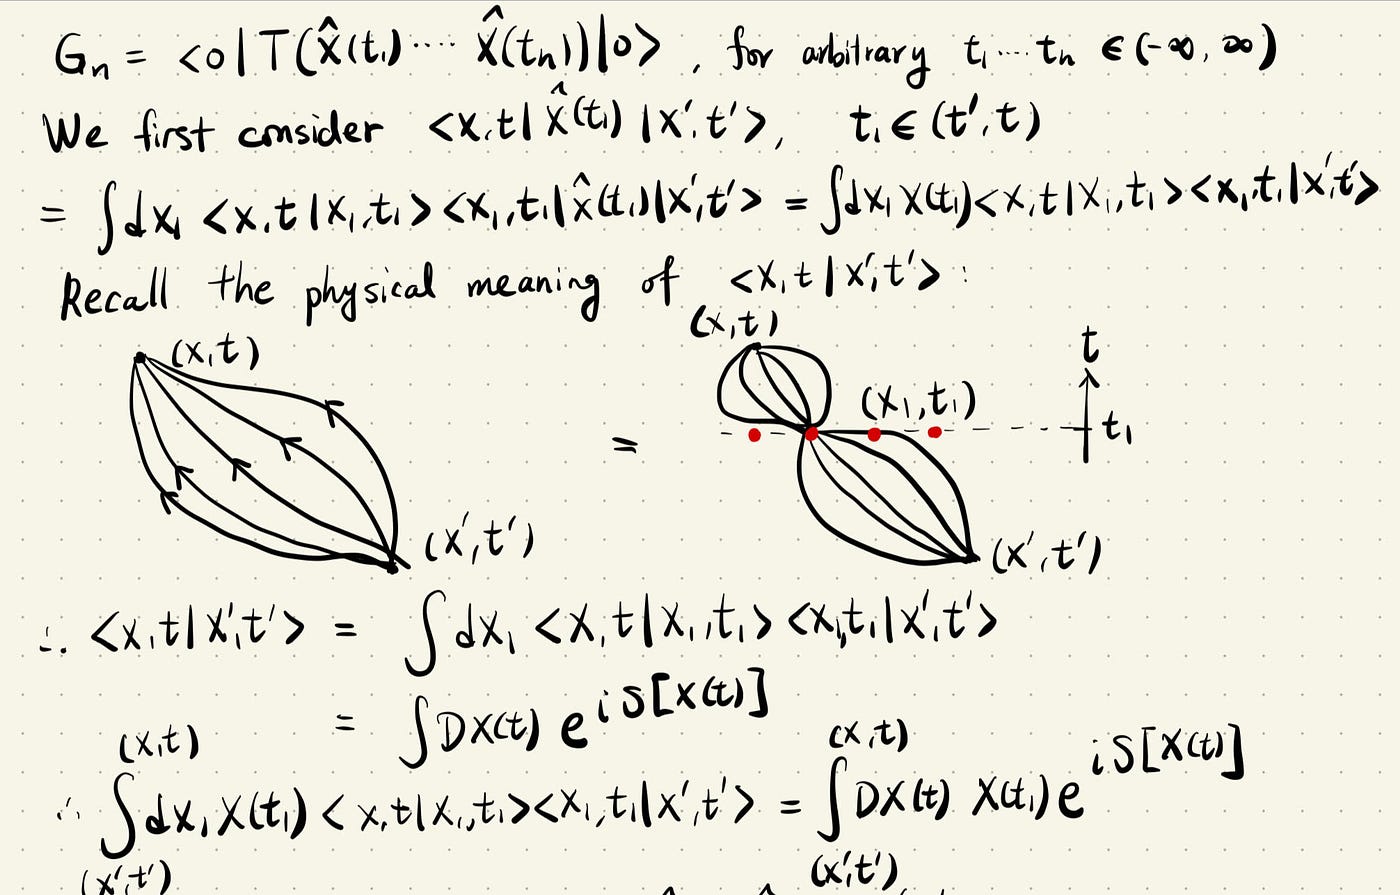 Gₙ = <0|T(x̂(t₁)···· x̂(tₙ))|0> , for arbitrary t₁····tₙ ∈(-∞, ∞)
We first consider <x,t| x̂(t₁) |x',t'>, t₁ ∈ (t',t)
= ∫dx₁ <x,t|x₁,t₁><x₁,t₁|x̂(t₁)|x',t'> = ∫dx₁ x(t₁)<x,t|x₁,t₁><x₁,t₁|x',t'>
Recall the physical meaning of <x,t|x',t'> :
(x,t)
(x,t)
t
(x₁,t₁)
t₁
=
(x',t')
(x',t')
∴ <x,t|x',t'> = ∫dx₁ <x,t|x₁,t₁> <x₁,t₁|x',t'>
= ∫DX(t) e^{iS[x(t)]}
(x,t)
(x,t)
∴ ∫dx₁ x(t₁) <x,t|x₁,t₁><x₁,t₁|x',t'> = ∫DX(t) X(t₁) e^{iS[x(t)]}
(x',t')
(x',t')